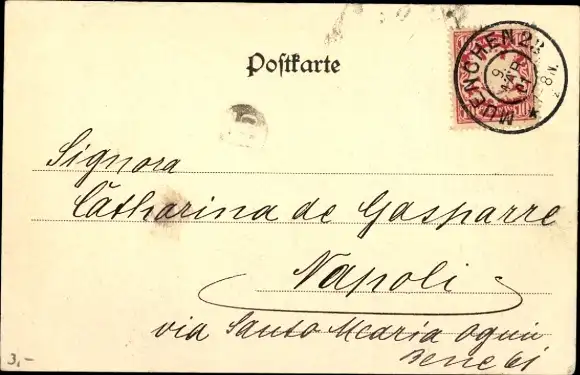 Postkarte
MUENCHEN 2
9 MAR
Signora
Catharina de Gasparre
Napoli
via Santo Maria ogni
Bene 61
3,-